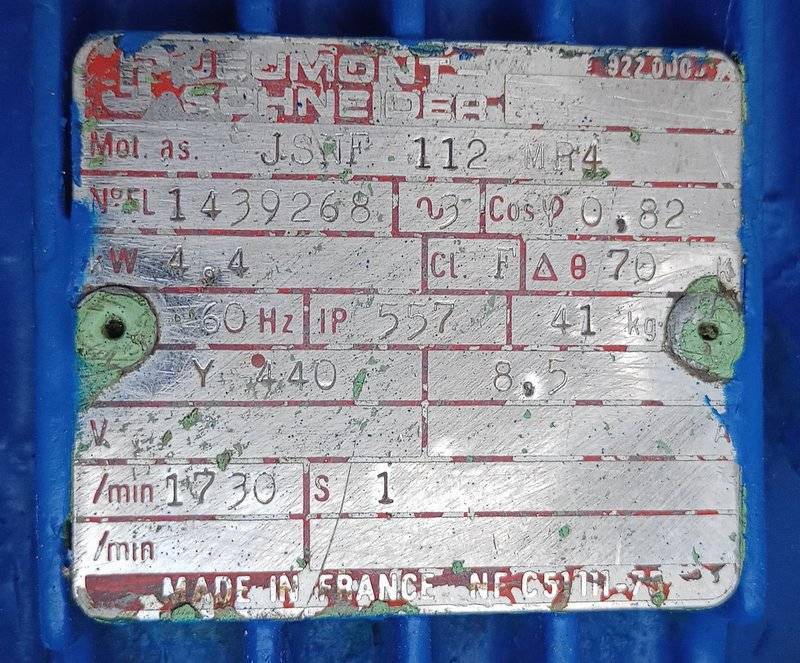 JEUMONT-
SCHNEIDER
Mot. as. JSNF 112 MR4
N° FL 1439268 ∿3 Cos φ 0,82
kW 4,4 Cl. F Δ θ 70 K
60 Hz IP 557 41 kg
Y 440 8,5
V
/min 1730 S 1
/min
MADE IN FRANCE NF C51 111